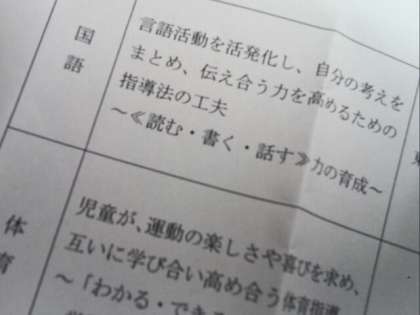 国語
言語活動を活発化し、自分の考えを
まとめ、伝え合う力を高めるための
指導法の工夫
～≪読む・書く・話す≫力の育成～
体育
児童が、運動の楽しさや喜びを求め、
互いに学び合い高め合う体育指導
～「わかる・できる